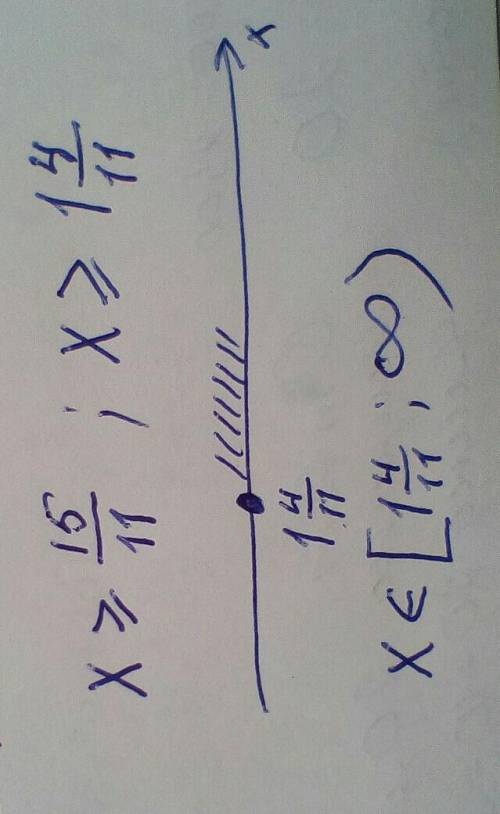 x ≥ 15/11 ; x ≥ 1 4/11
x
1 4/11
x ∈ [1 4/11 ; ∞)